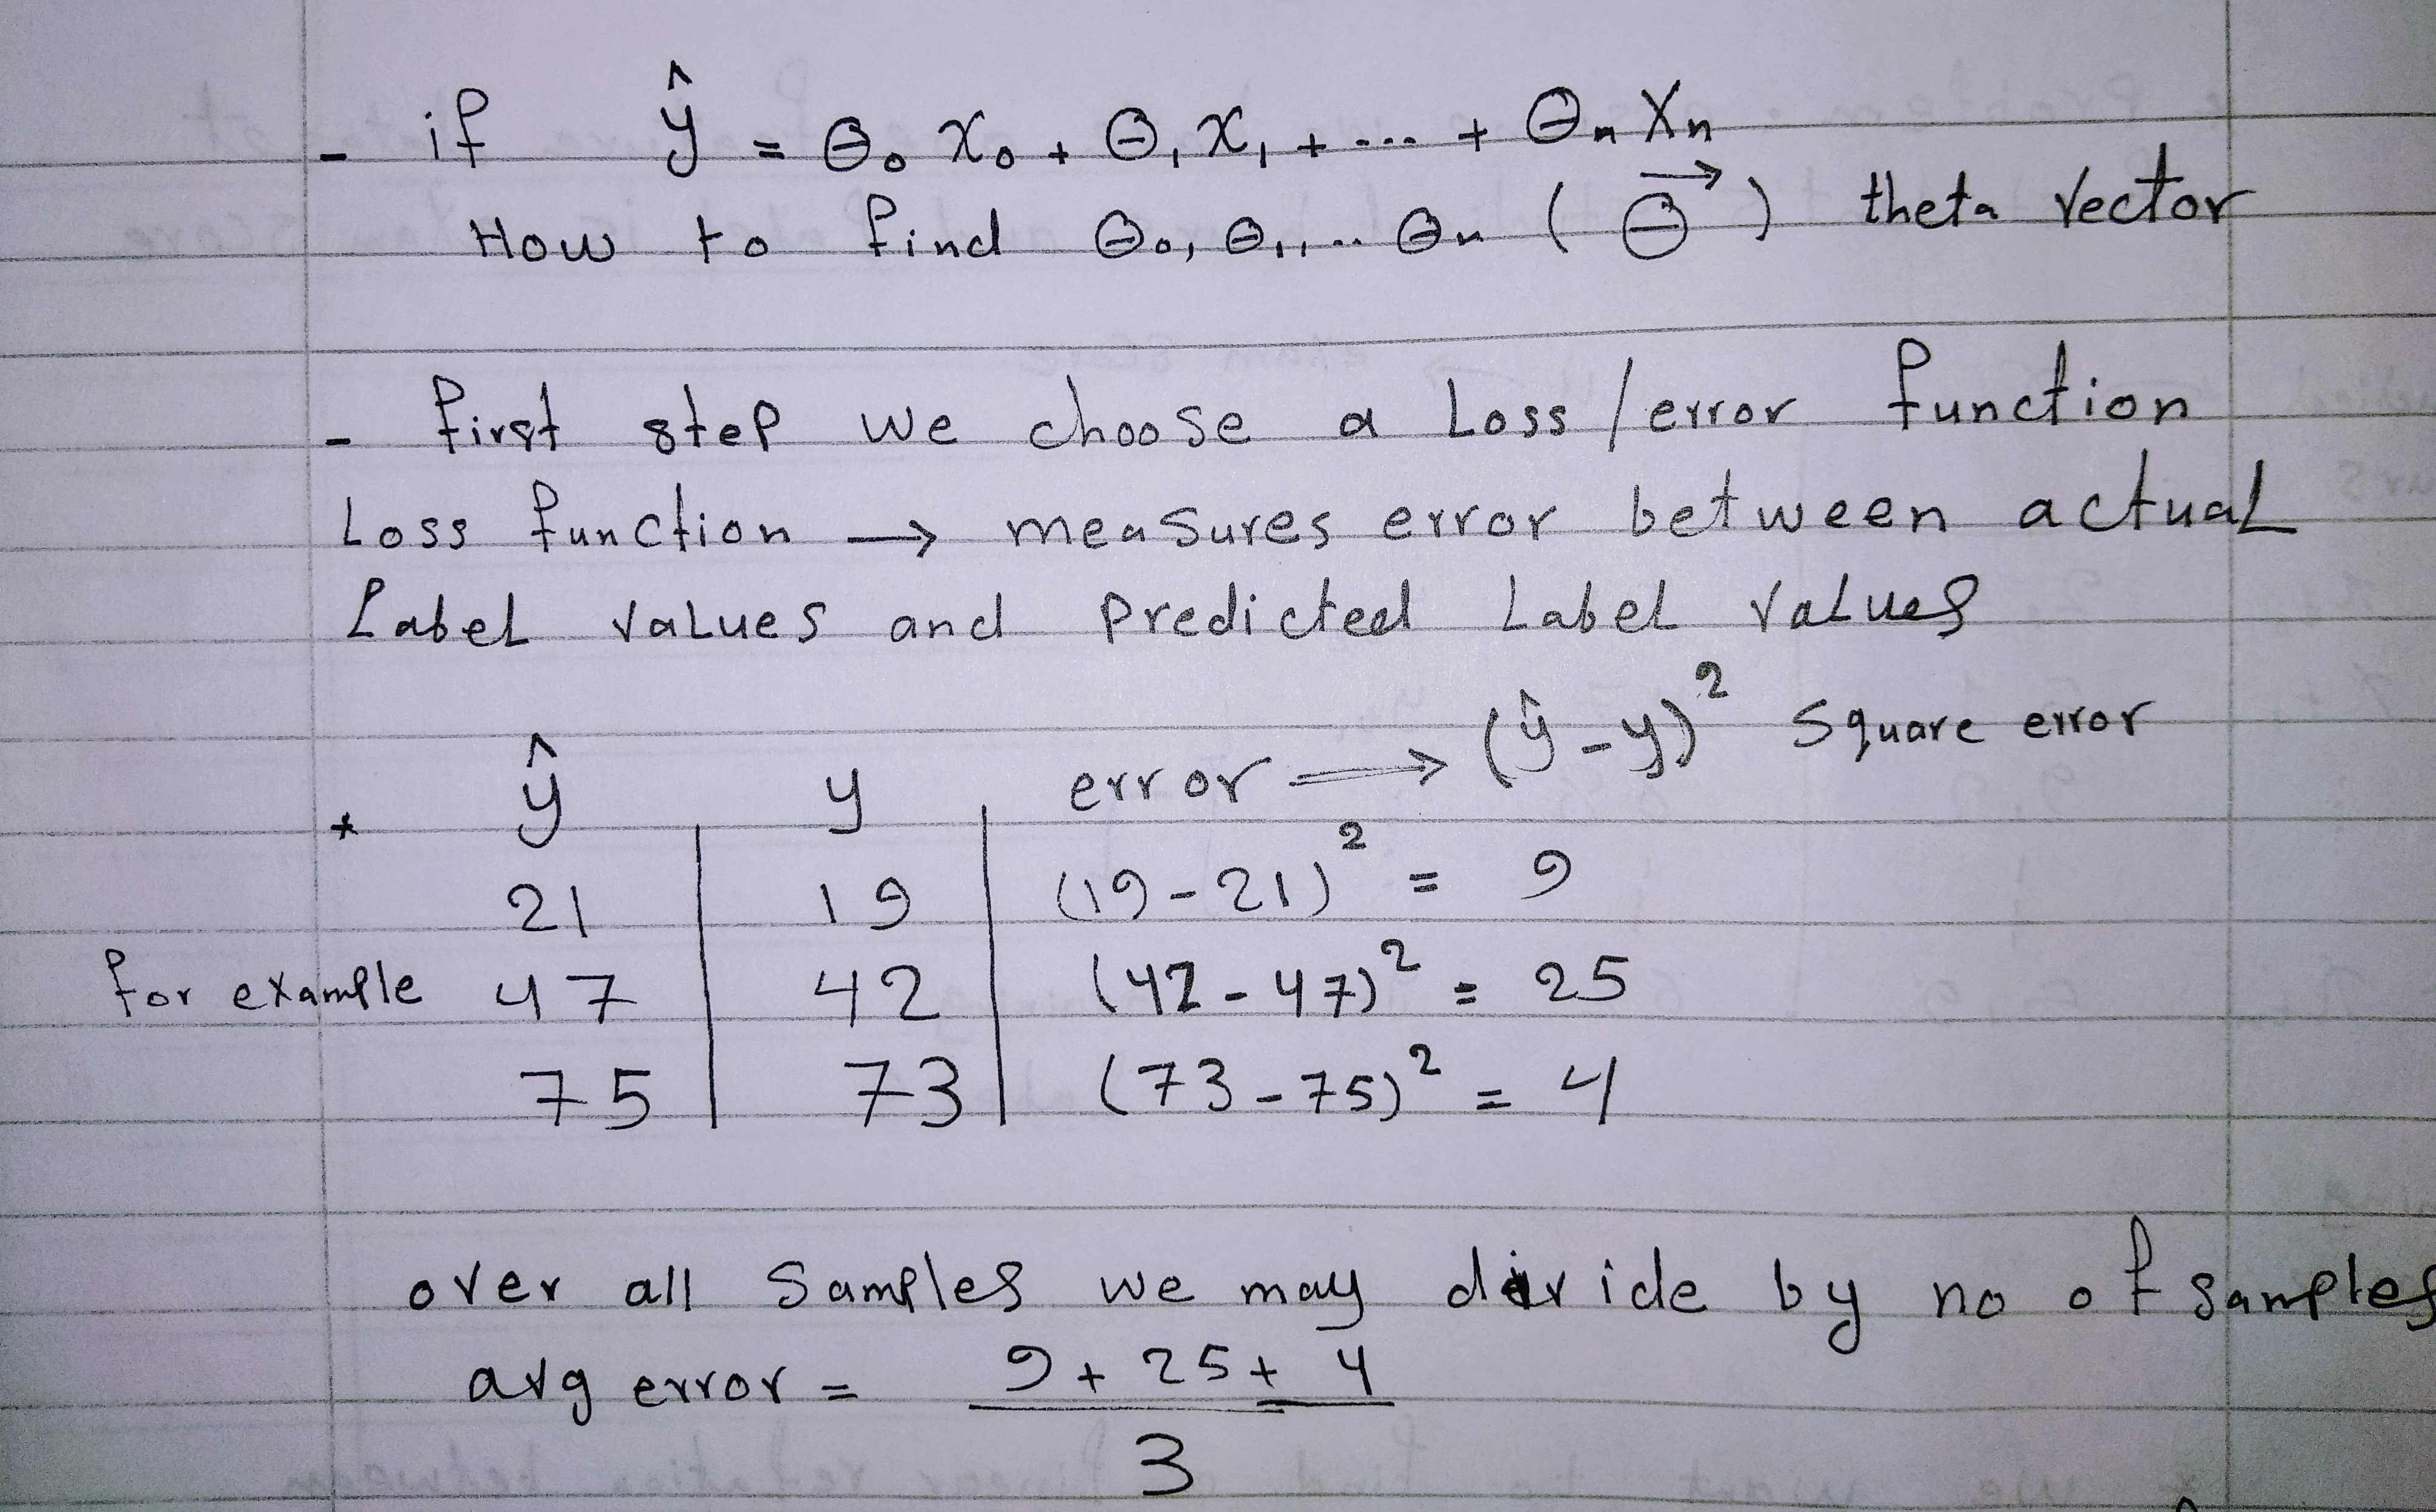 - if ŷ = Θ₀ x₀ + Θ₁ x₁ + ... + Θₙ Xₙ
How to find Θ₀, Θ₁, .. Θₙ ( Θ⃗ ) theta vector
- first step we choose a Loss / error function
Loss function → measures error between actual
Label values and predicted Label values
* ŷ y error ⟹ (ŷ - y)² Square error
21 19 (19 - 21)² = 9
for example 47 42 (42 - 47)² = 25
75 73 (73 - 75)² = 4
over all samples we may divide by no of samples
avg error = 9 + 25 + 4
3